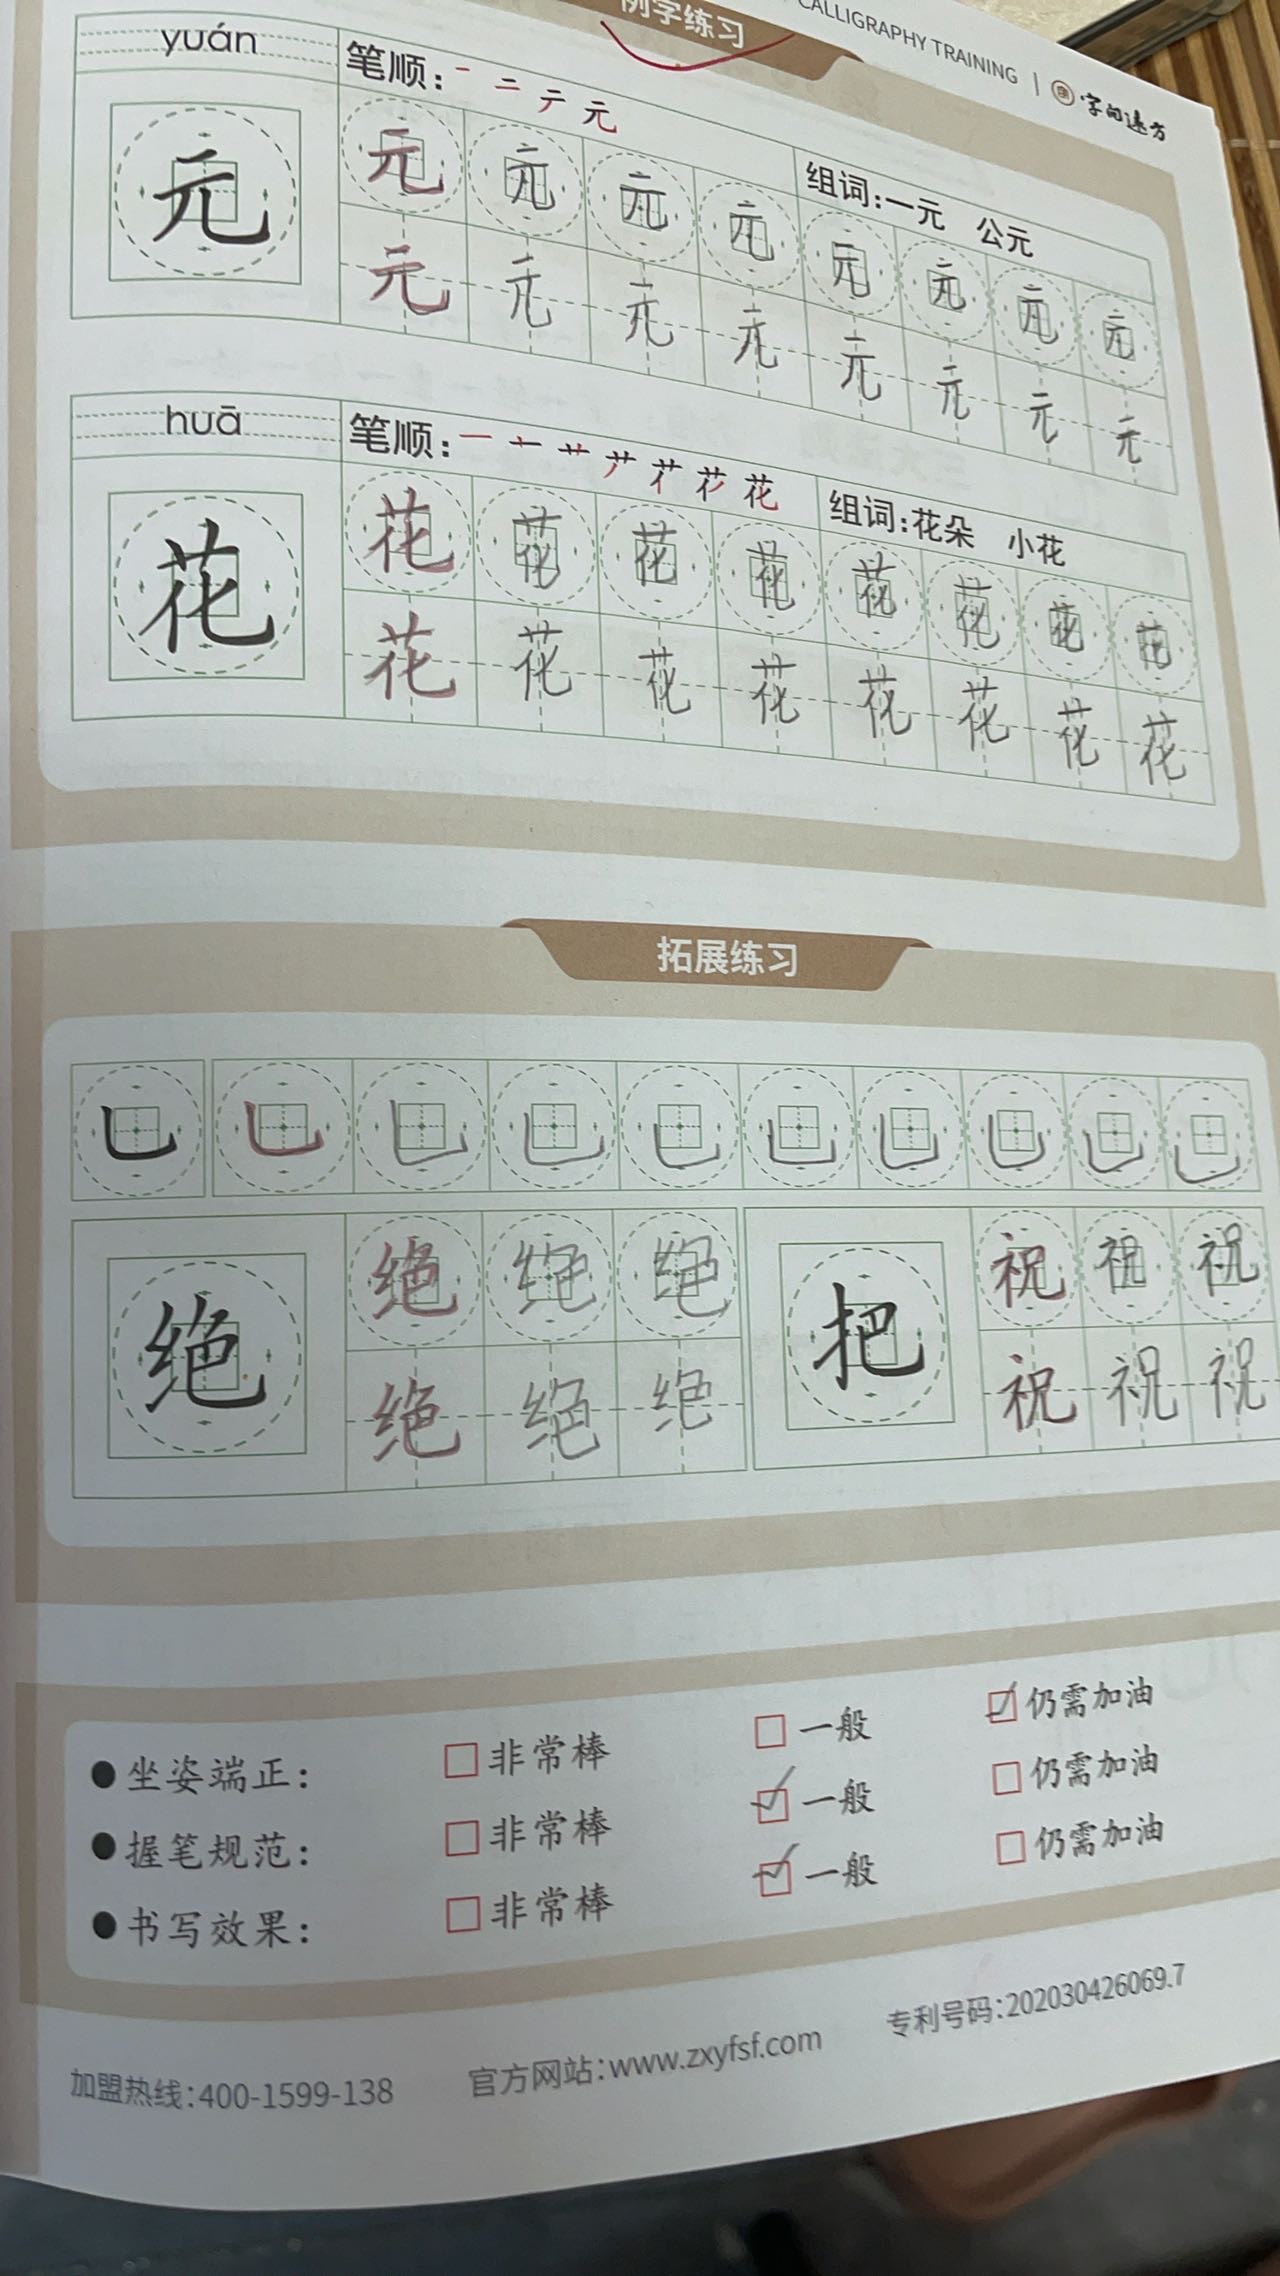 例字练习
CALLIGRAPHY TRAINING | 字间远方
yuán
笔顺: 一 二 元
组词:一元 公元
元 元 元 元 元 元 元 元 元
元 元 元 元 元 元 元 元
huā
笔顺:
花
组词:花朵 小花
花 花 花 花 花 花 花 花 花
花 花 花 花 花 花 花 花
拓展练习
乚 乚 乚 乚 乚 乚 乚 乚 乚 乚
绝 绝 绝 绝 把 祝 祝 祝
绝 绝 绝 祝 祝 祝
●坐姿端正: □非常棒 □一般 ☑仍需加油
●握笔规范: □非常棒 ☑一般 □仍需加油
●书写效果: □非常棒 ☑一般 □仍需加油
加盟热线:400-1599-138 官方网站:www.zxyfsf.com 专利号码:202030426069.7